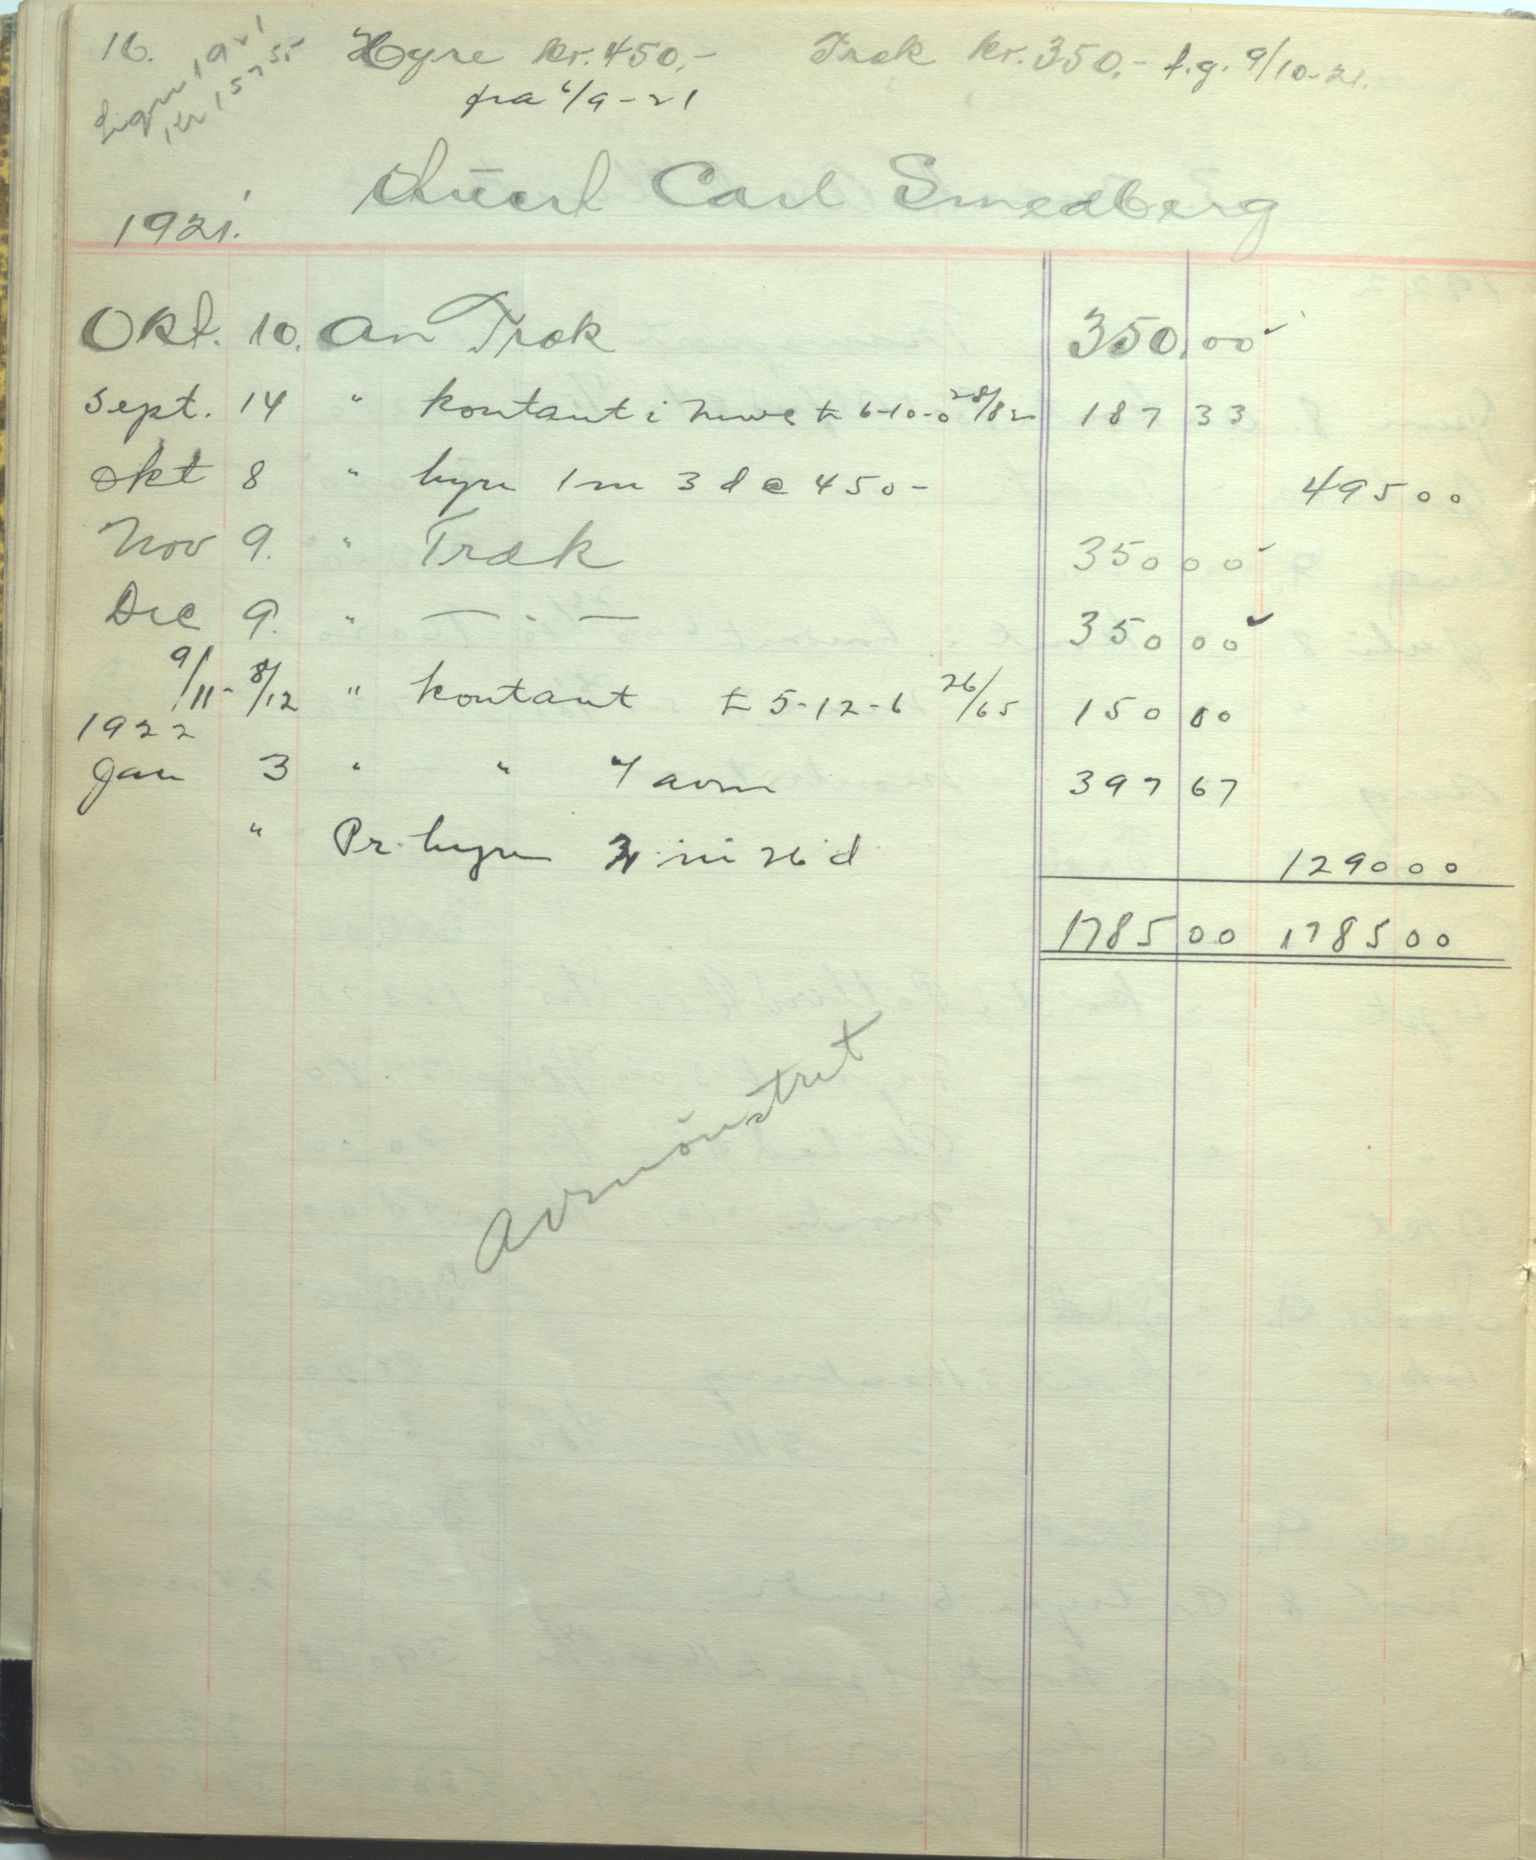 16. Hyre kr. 450,- Træk kr. 350,- f.g. 9/10-21.
Lign 1921
kr 1575
fra 6/9-21
Carl Smedberg
1921.
Okt. 10. An Træk 350,00
Sept. 14 " kontant i £ 6-10-0 28/82 187 33
Okt 8 " hyre 1 m 3 d @ 450- 495 00
Nov 9. " Træk 350 00
Dec 9. " — " — 350 00
9/11-8/12 " kontant £ 5-12-6 26/65 150 00
1922
Jan 3 " " v/ avm 397 67
" Pr. hyre m 26 d 1290 00
1785 00 1785 00
Avmönstret